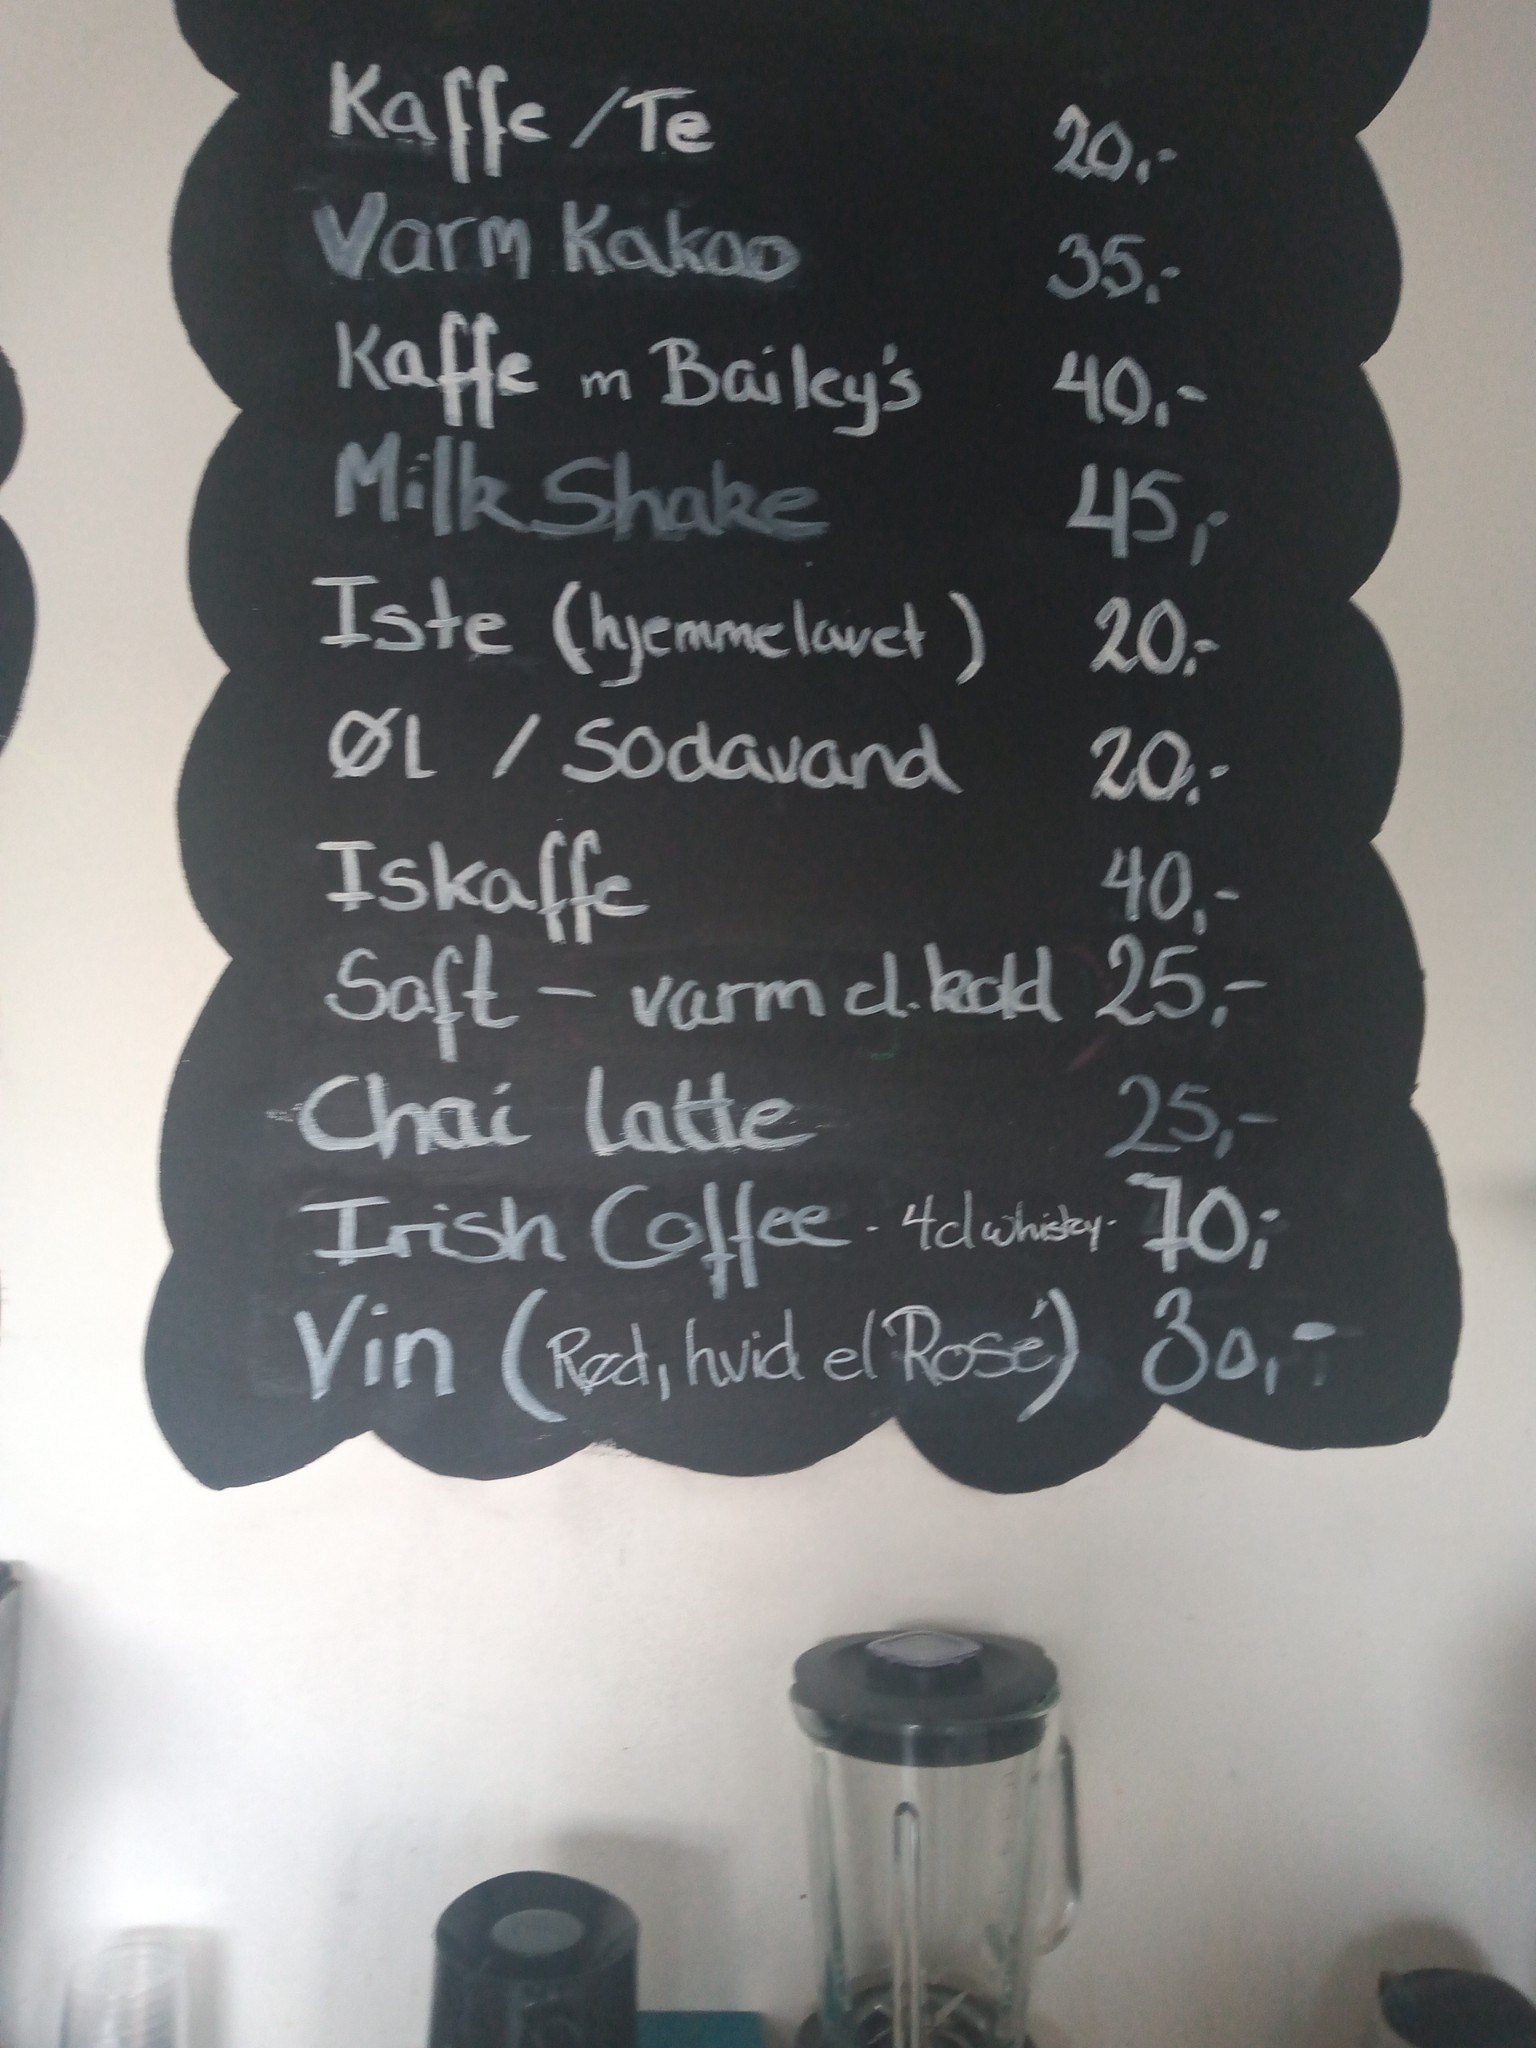 Kaffe / Te 20,-
Varm Kakao 35,-
Kaffe m Bailey's 40,-
Milk Shake 45,-
Iste (hjemmelavet) 20,-
ØL / Sodavand 20,-
Iskaffe 40,-
Saft - varm el. kold 25,-
Chai Latte 25,-
Irish Coffee - 4cl whisky - 70,-
Vin (Rød, hvid el Rosé) 30,-